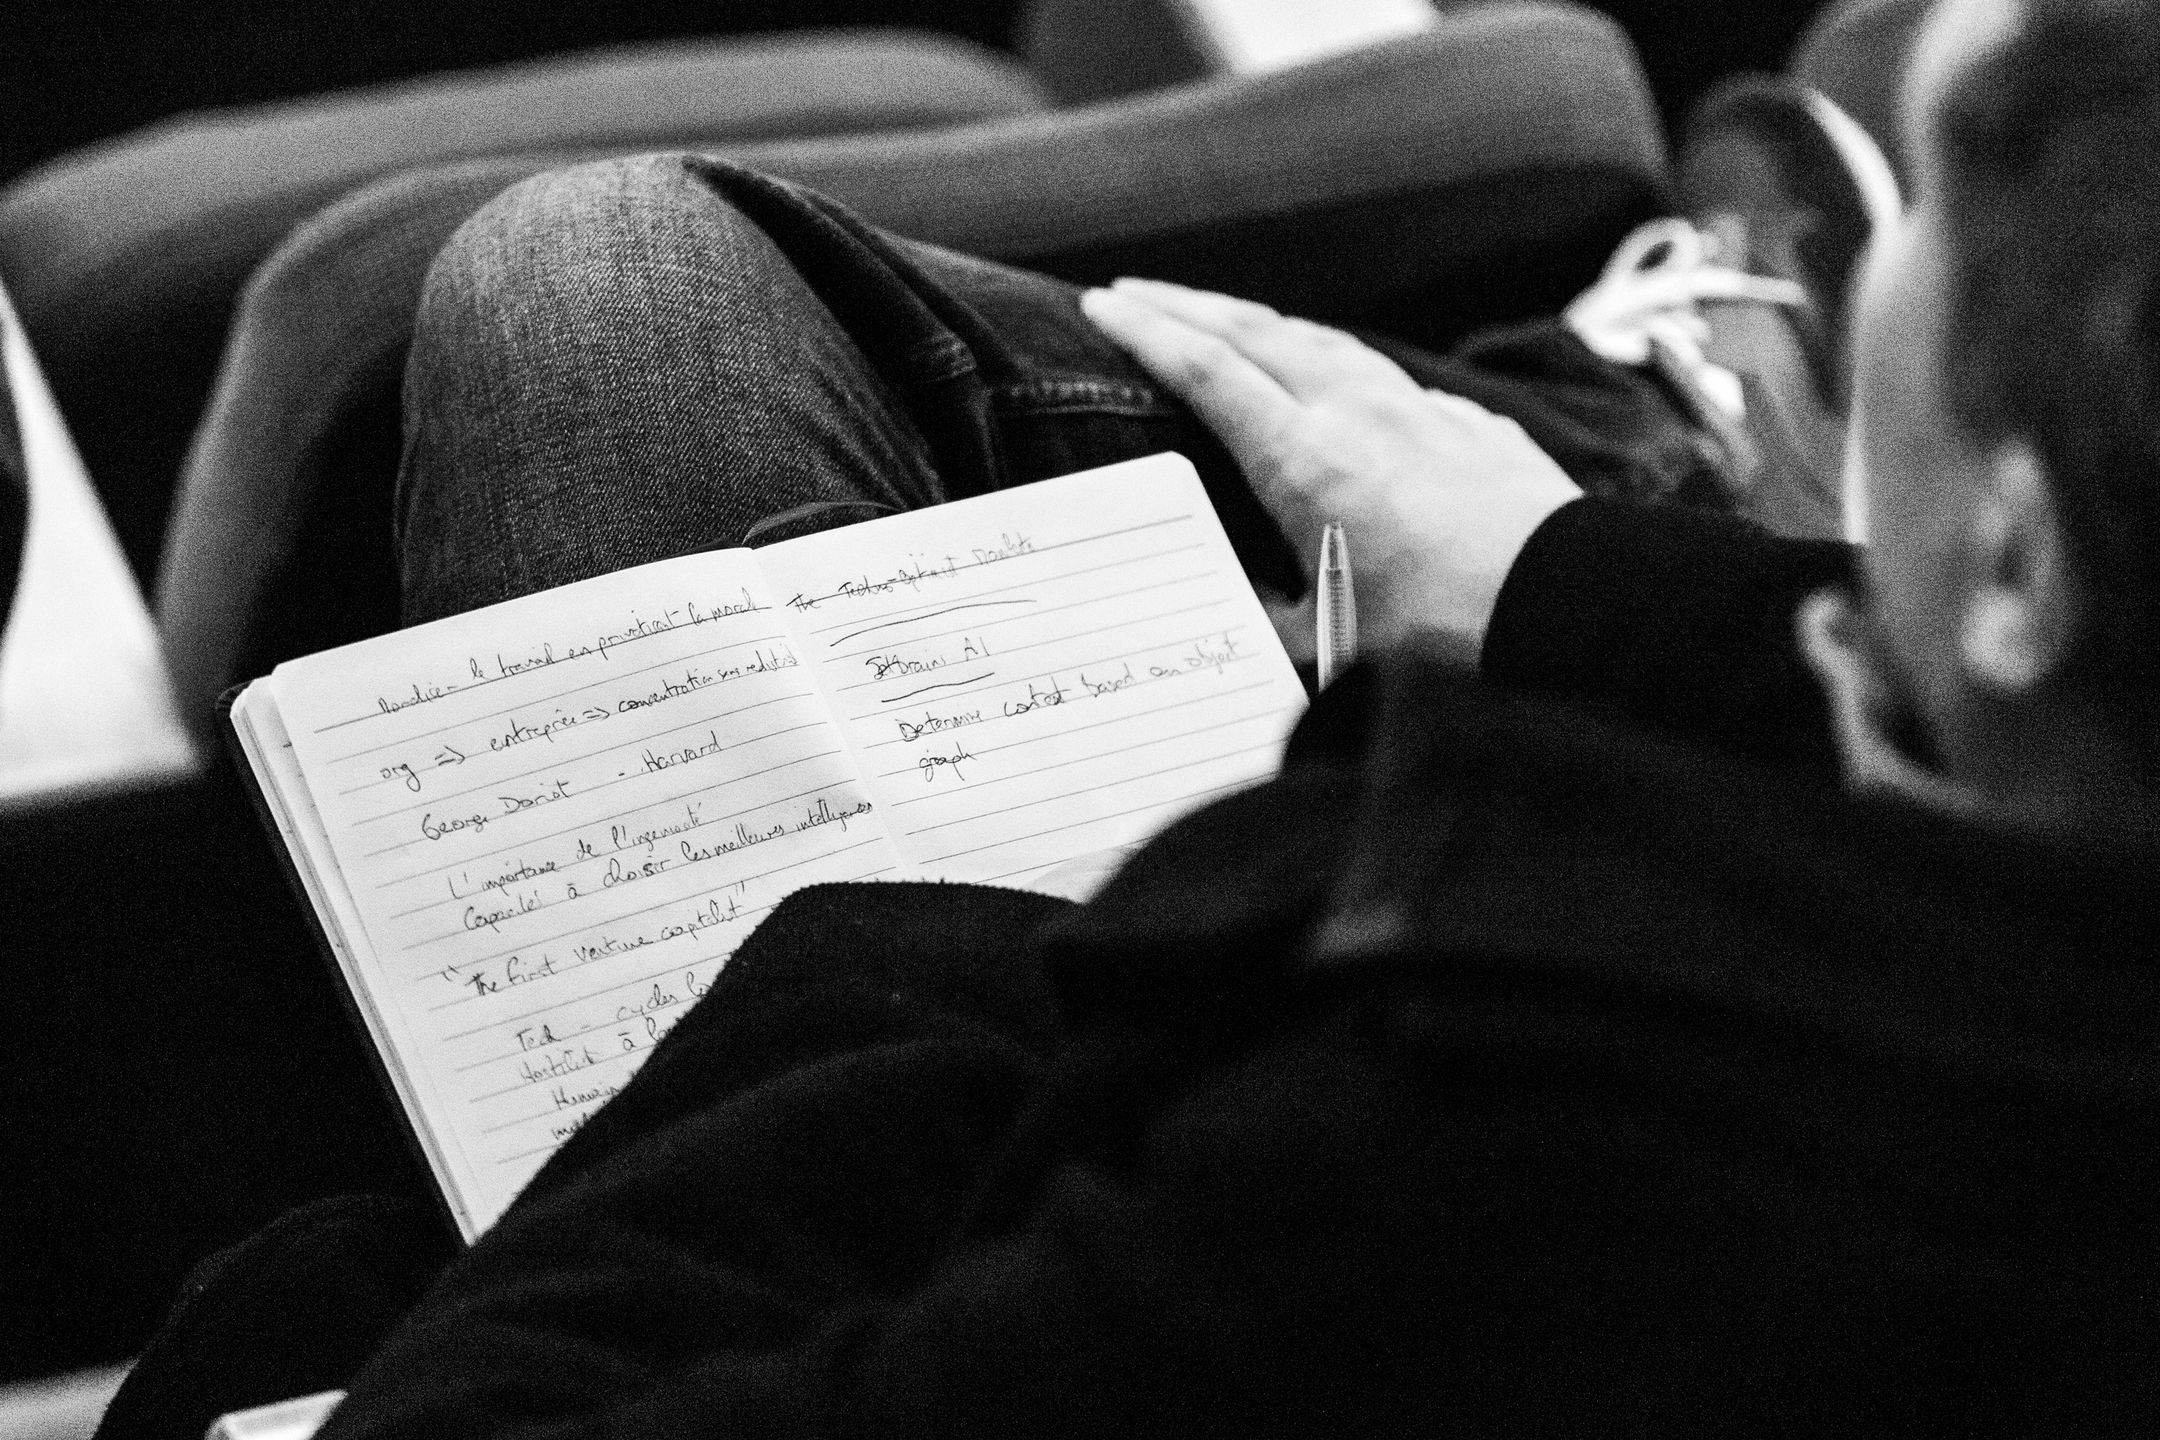 le travail en privatisant la morale
org => entreprise => concentration sans
George Doriot - Harvard
L'importance de l'ingéniosité
Capacité à choisir les meilleures intelligences
"The first venture capitalist"
Tech - cycles
Hostilité à
Humain
The Techno-Optimist Manifesto
Jetbrains AI
Determine context based on object
graph